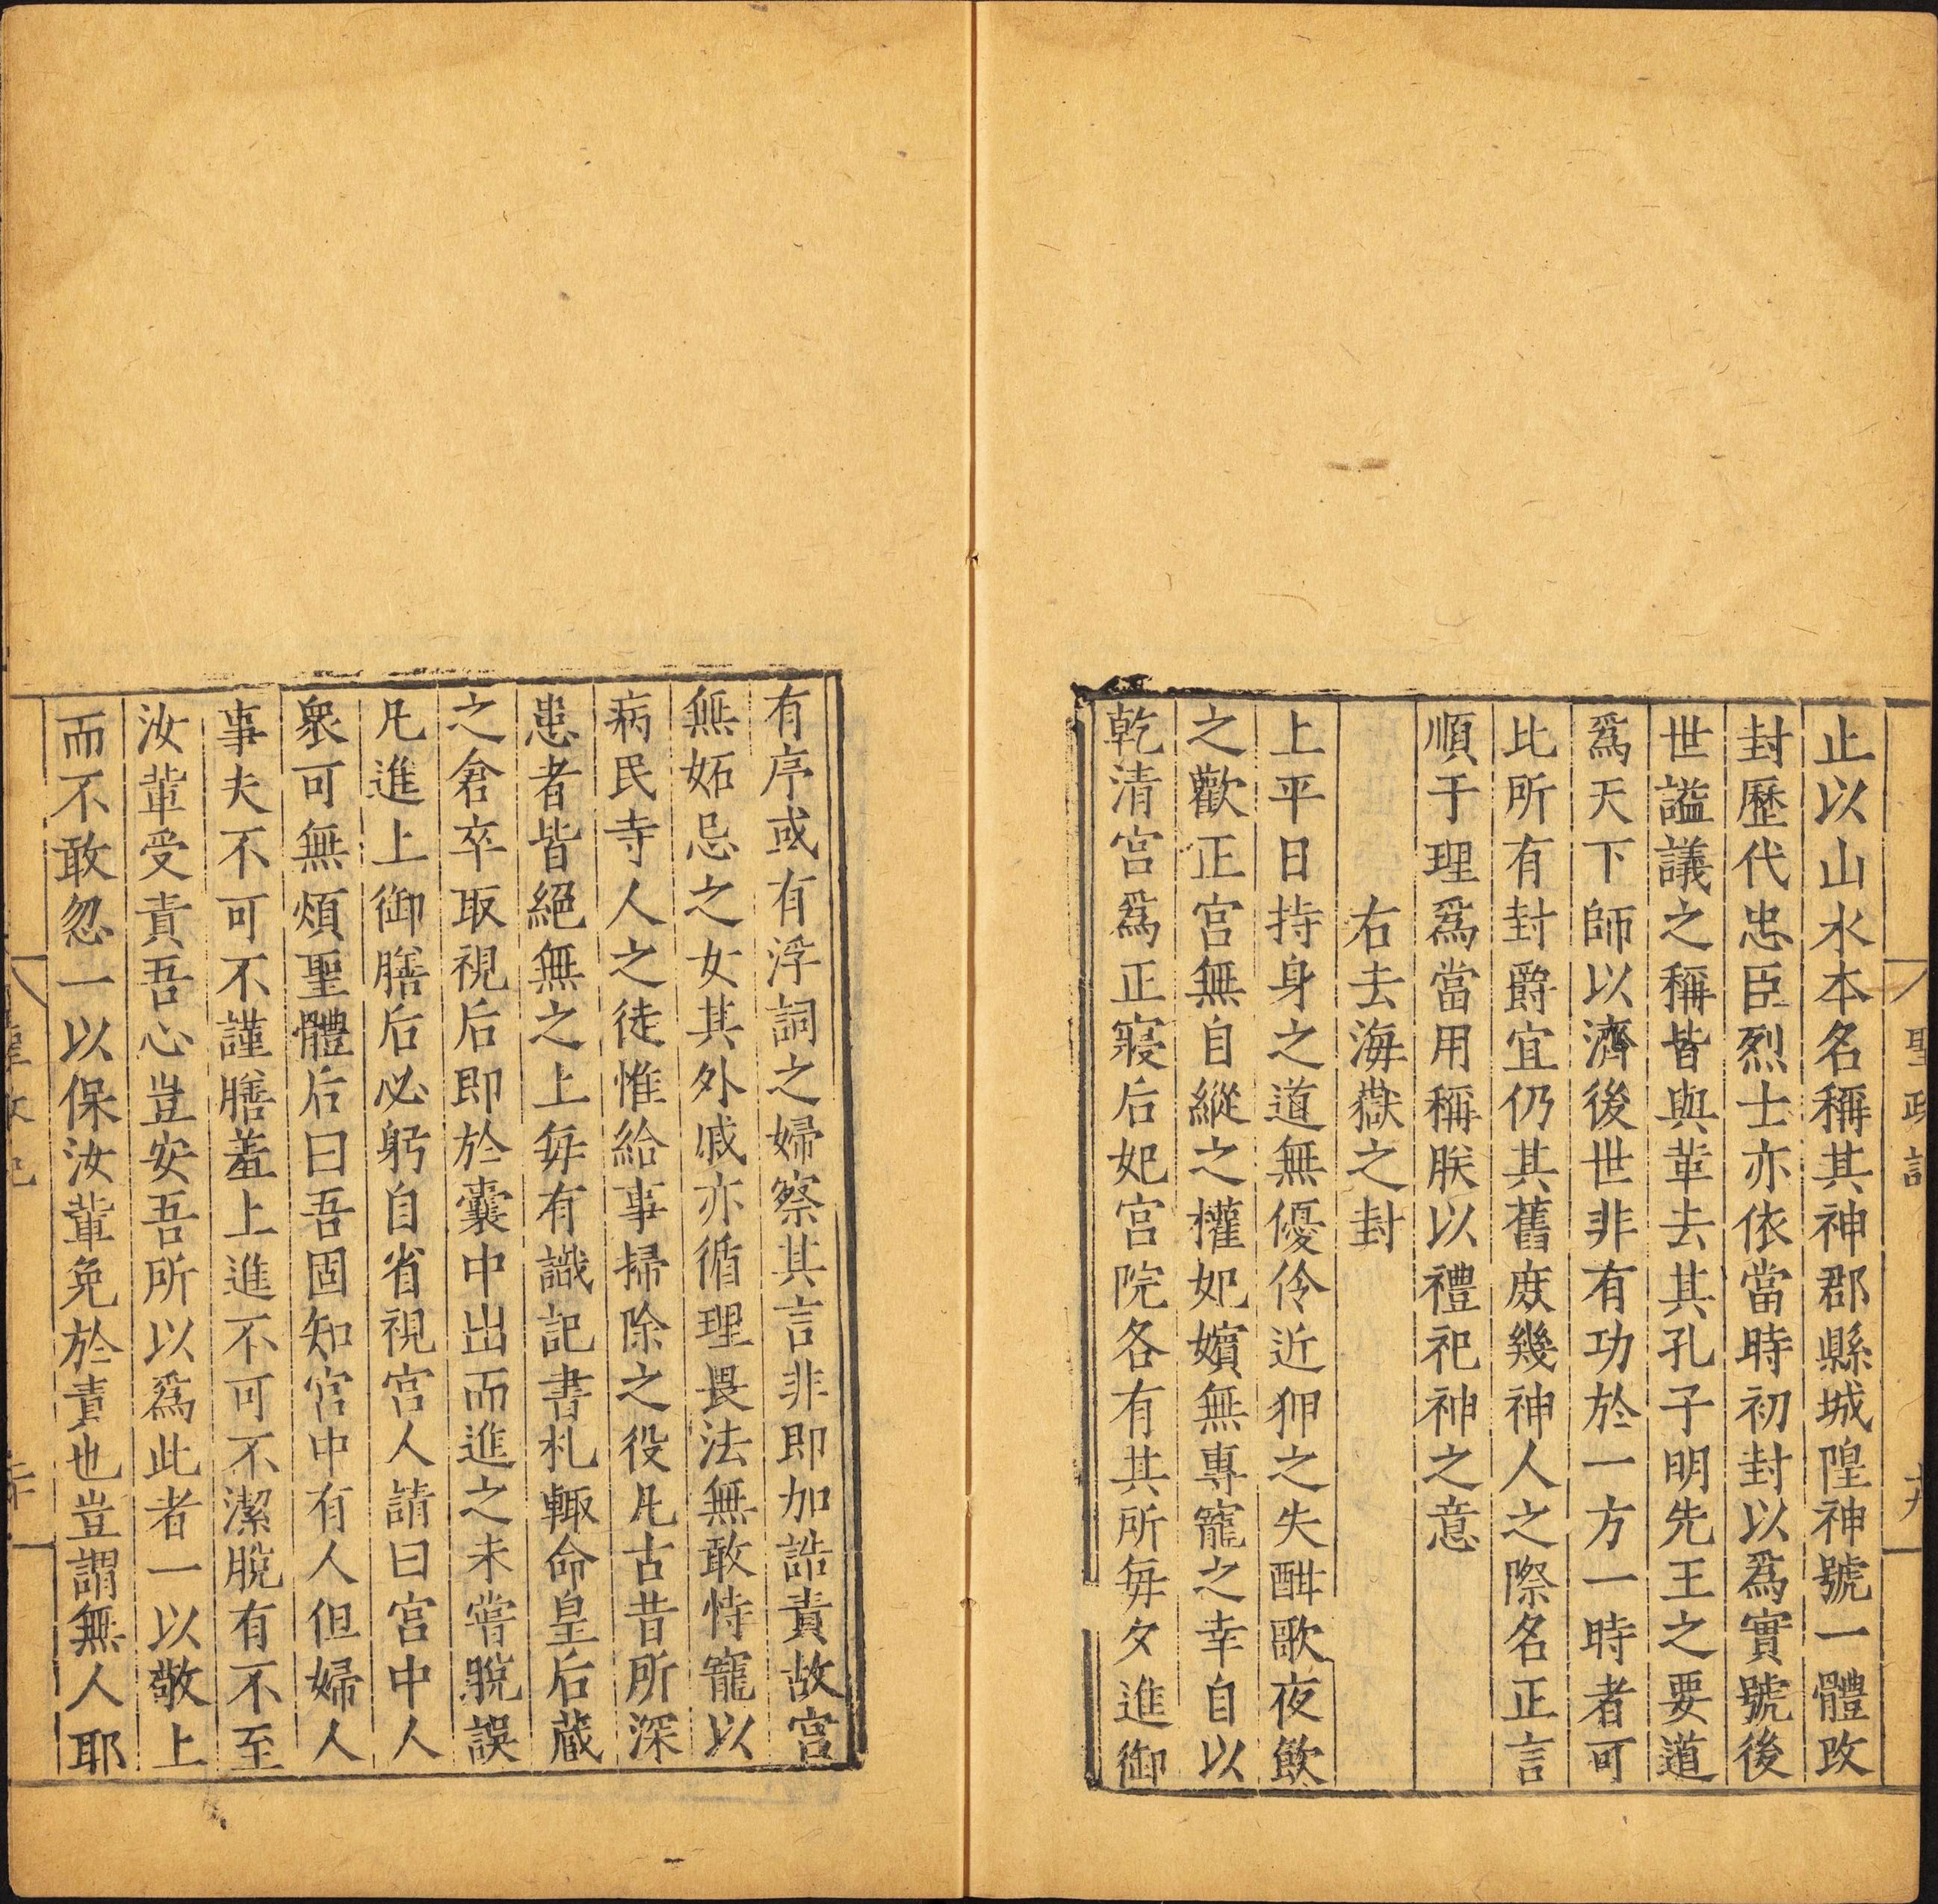 聖政記
止以山水本名稱其神郡縣城隍神號一體改
封歷代忠臣烈士亦依當時初封以爲實號後
世謚議之稱皆與革去其孔子明先王之要道
爲天下師以濟後世非有功於一方一時者可
比所有封爵宜仍其舊庻幾神人之際名正言
順于理爲當用稱朕以禮祀神之意
右去海嶽之封
上平日持身之道無優伶近狎之失酣歌夜飲
之歡正宮無自縱之權妃嬪無專寵之幸自以
乾清宮爲正寢后妃宮院各有其所每夕進御
有序或有浮詞之婦察其言非即加誥責故宮
無妬忌之女其外戚亦循理畏法無敢恃寵以
病民寺人之徒惟給事掃除之役凡古昔所深
患者皆絕無之上每有識記書札輙命皇后蔵
之倉卒取視后即於囊中出而進之未嘗脫誤
凡進上御膳后必躬自省視宮人請曰宮中人
衆可無煩聖體后曰吾固知宮中有人但婦人
事夫不可不謹膳羞上進不可不潔脫有不至
汝輩受責吾心豈安吾所以爲此者一以敬上
而不敢忽一以保汝輩免於責也豈謂無人耶